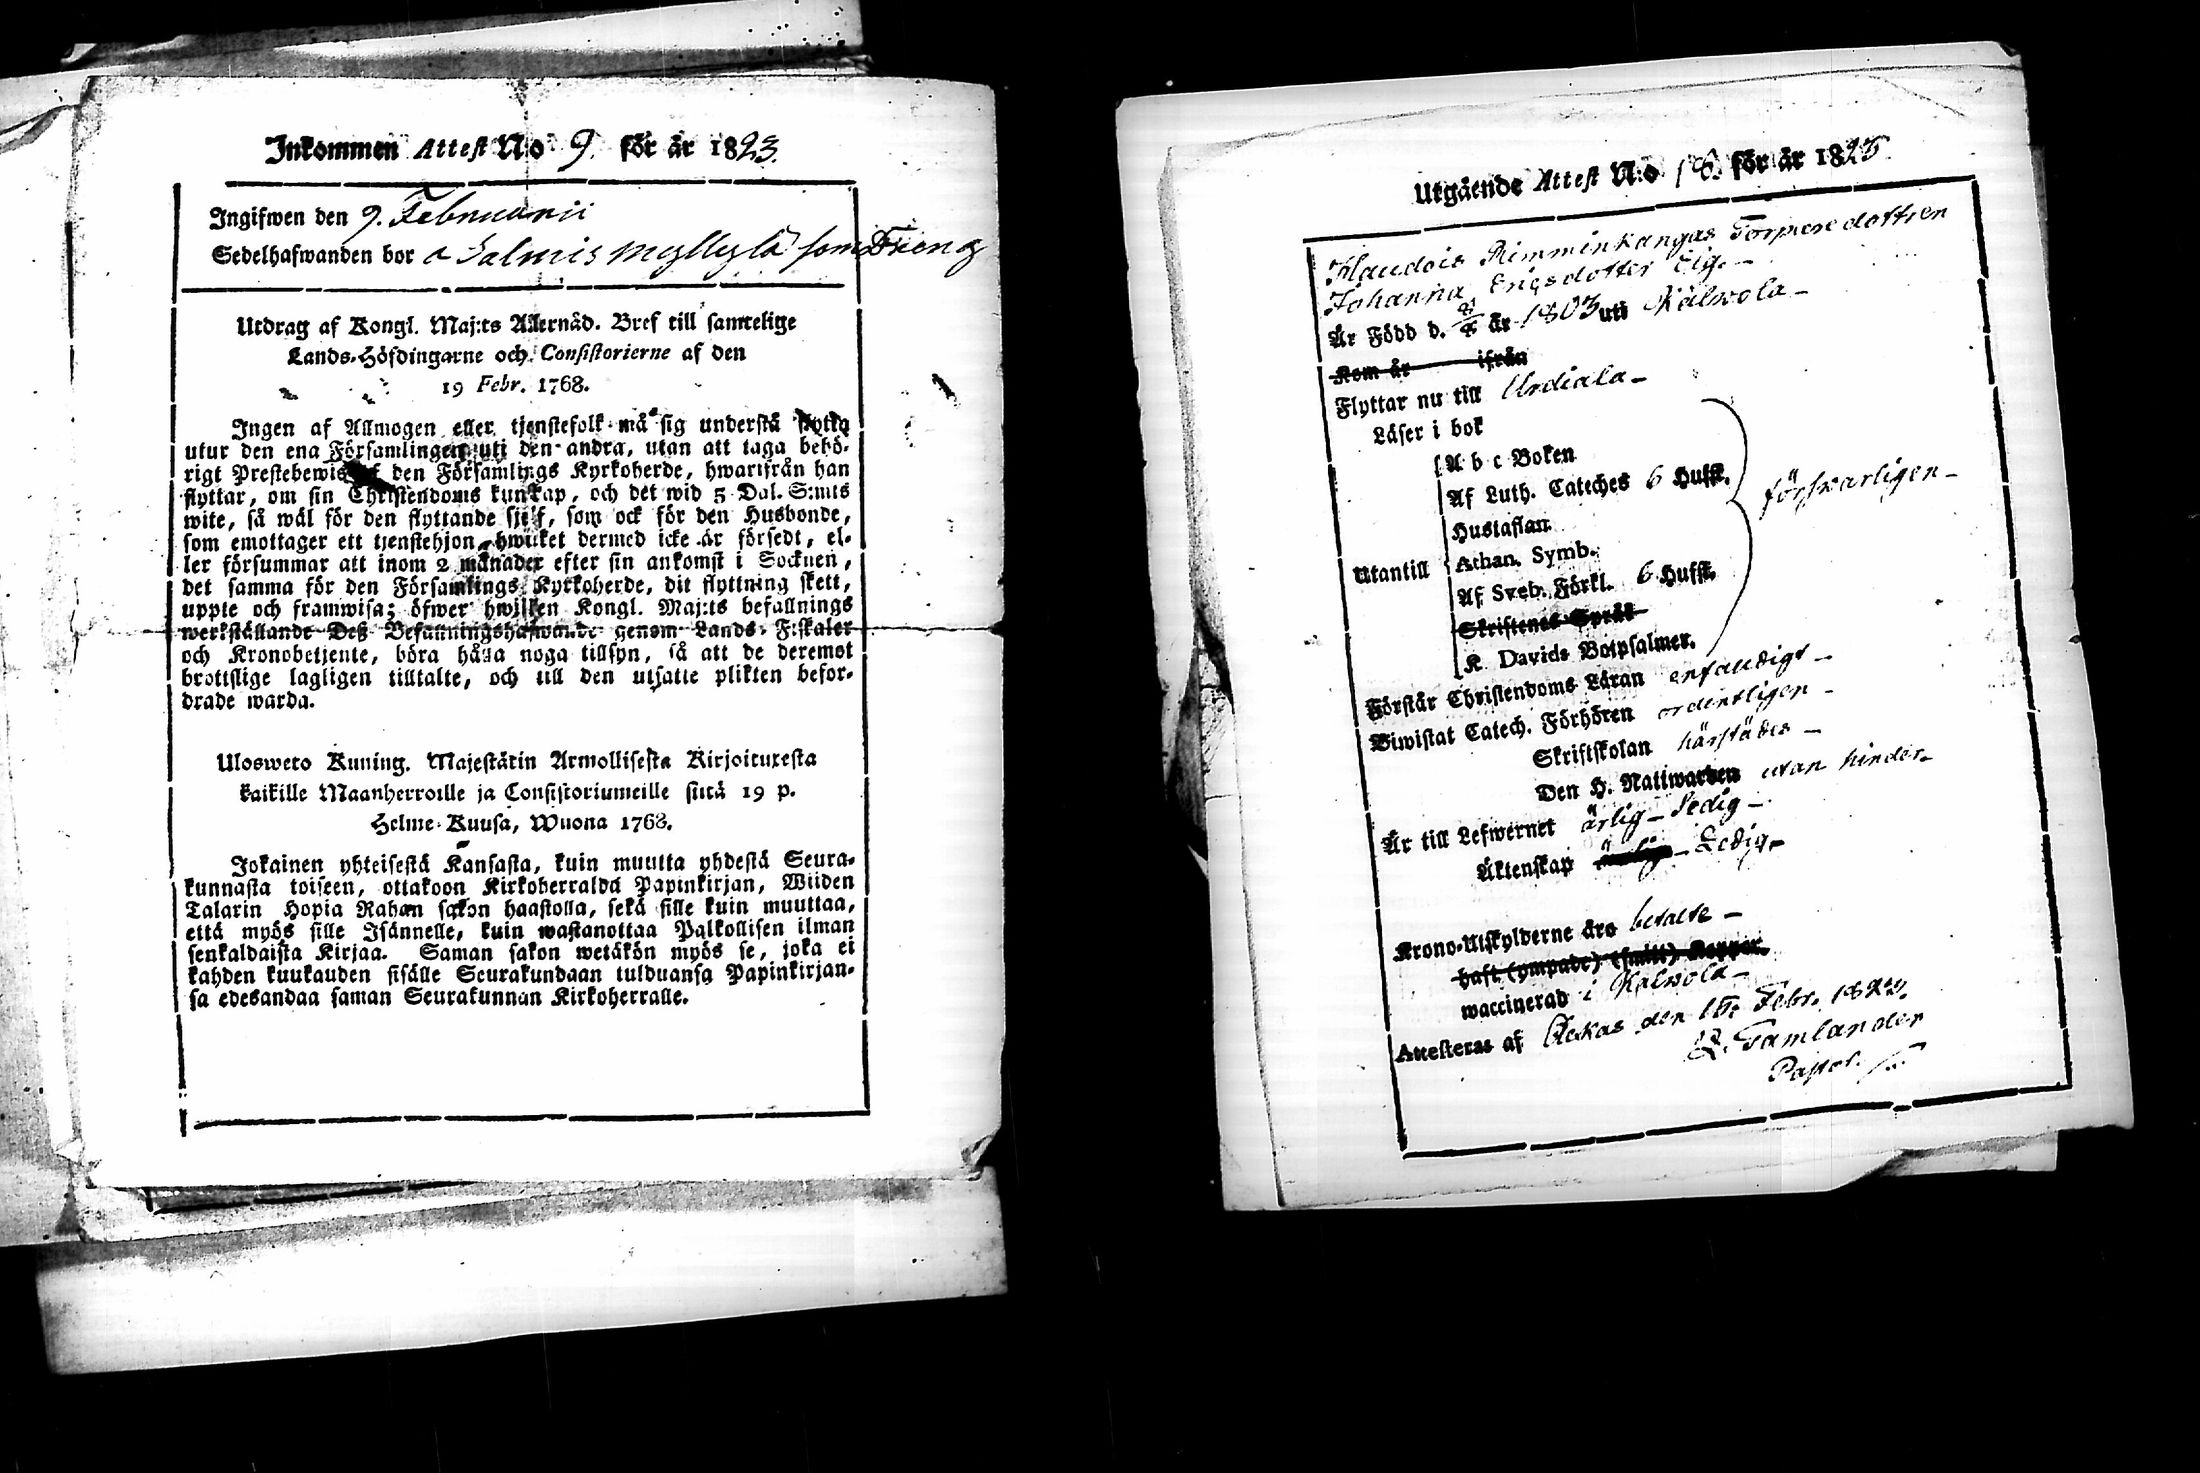 Inkommen Attest No 9. för år 1823.
Ingifwen den 9. Februarii
Sedelhafwanden bor a Salmis Myllylä som Dreng
Utdrag af Kongl. Maj:ts Allernåd. Bref till samtelige
Lands-Höfdingarne och Consistorierne af den
19 Febr. 1768.
Ingen af Allmogen eller tjenstefolk må sig understå flytta
utur den ena Församlingen uti den andra, utan att taga behö-
rigt Prestebewis af den Församlings Kyrkoherde, hwarifrån han
flyttar, om sin Christendoms kunskap, och det wid 5 Dal. S:mts
wite, så wäl för den flyttande sjelf, som ock för den Husbonde,
som emottager ett tjenstehjon, hwilket dermed icke är försedt, el-
ler försummar att inom 2 månader efter sin ankomst i Socknen,
det samma för den Församlings Kyrkoherde, dit flyttning skett,
uppte och framwisa; öfwer hwilken Kongl. Maj:ts befallnings
werkställande Deß Befallningshafwande genom Lands-Fiskaler
och Kronobetjente, böra hålla noga tillsyn, så att de deremot
brottslige lagligen tilltalte, och till den utsatte plikten befor-
drade warda.
Uloswetо Kuning. Majestätin Armollisesta Kirjoituxesta
kaikille Maanherroille ja Consistoriumeille siitä 19 p.
Helme-Kuusa, Wuona 1768.
Jokainen yhteisestä Kansasta, kuin muutta yhdestä Seura-
kunnasta toiseen, ottakoon Kirkoherralda Papinkirjan, Wiiden
Talarin Hopia Rahan sakon haastolla, sekä sille kuin muuttaa,
että myös sille Isännelle, kuin wastanottaa Palkollisen ilman
senkaldaista Kirjaa. Saman sakon wetäkön myös se, joka ei
kahden kuukauden sisälle Seurakundaan tulduansa Papinkirjan-
sa edesandaa saman Seurakunnan Kirkoherralle.
Utgående Attest N:o 18. för år 1823
Rimminkangas Torpare dottren
Johanna Ericsdotter
Är Född d. år 1803 uti Kalwola -
Kom år ifrån
Flyttar nu till Urdiala -
Läser i bok
A b c Boken
Af Luth. Cateches 6 Hufst.
försvarligen -
Hustaflan
Utantill
Athan. Symb.
Af Sveb. Förkl. 6 Hufst.
Skriftenes Språk
K. Davids Botpsalmer.
Förstår Christendoms Läran enfaudigt -
Biwistat Catech. Förhören ordentligen -
Skriftskolan härstädes -
Den H. Nattwarden utan hinder -
Är till Lefwernet ärlig - Ledig -
Äktenskap - Ledig -
Krono-Utskylderne äro betalte -
haft (ympade) (smitt) Koppor.
waccinerad i Kalwola -
Attesteras af den Febr. 1823.
Tamlander
Pastor.